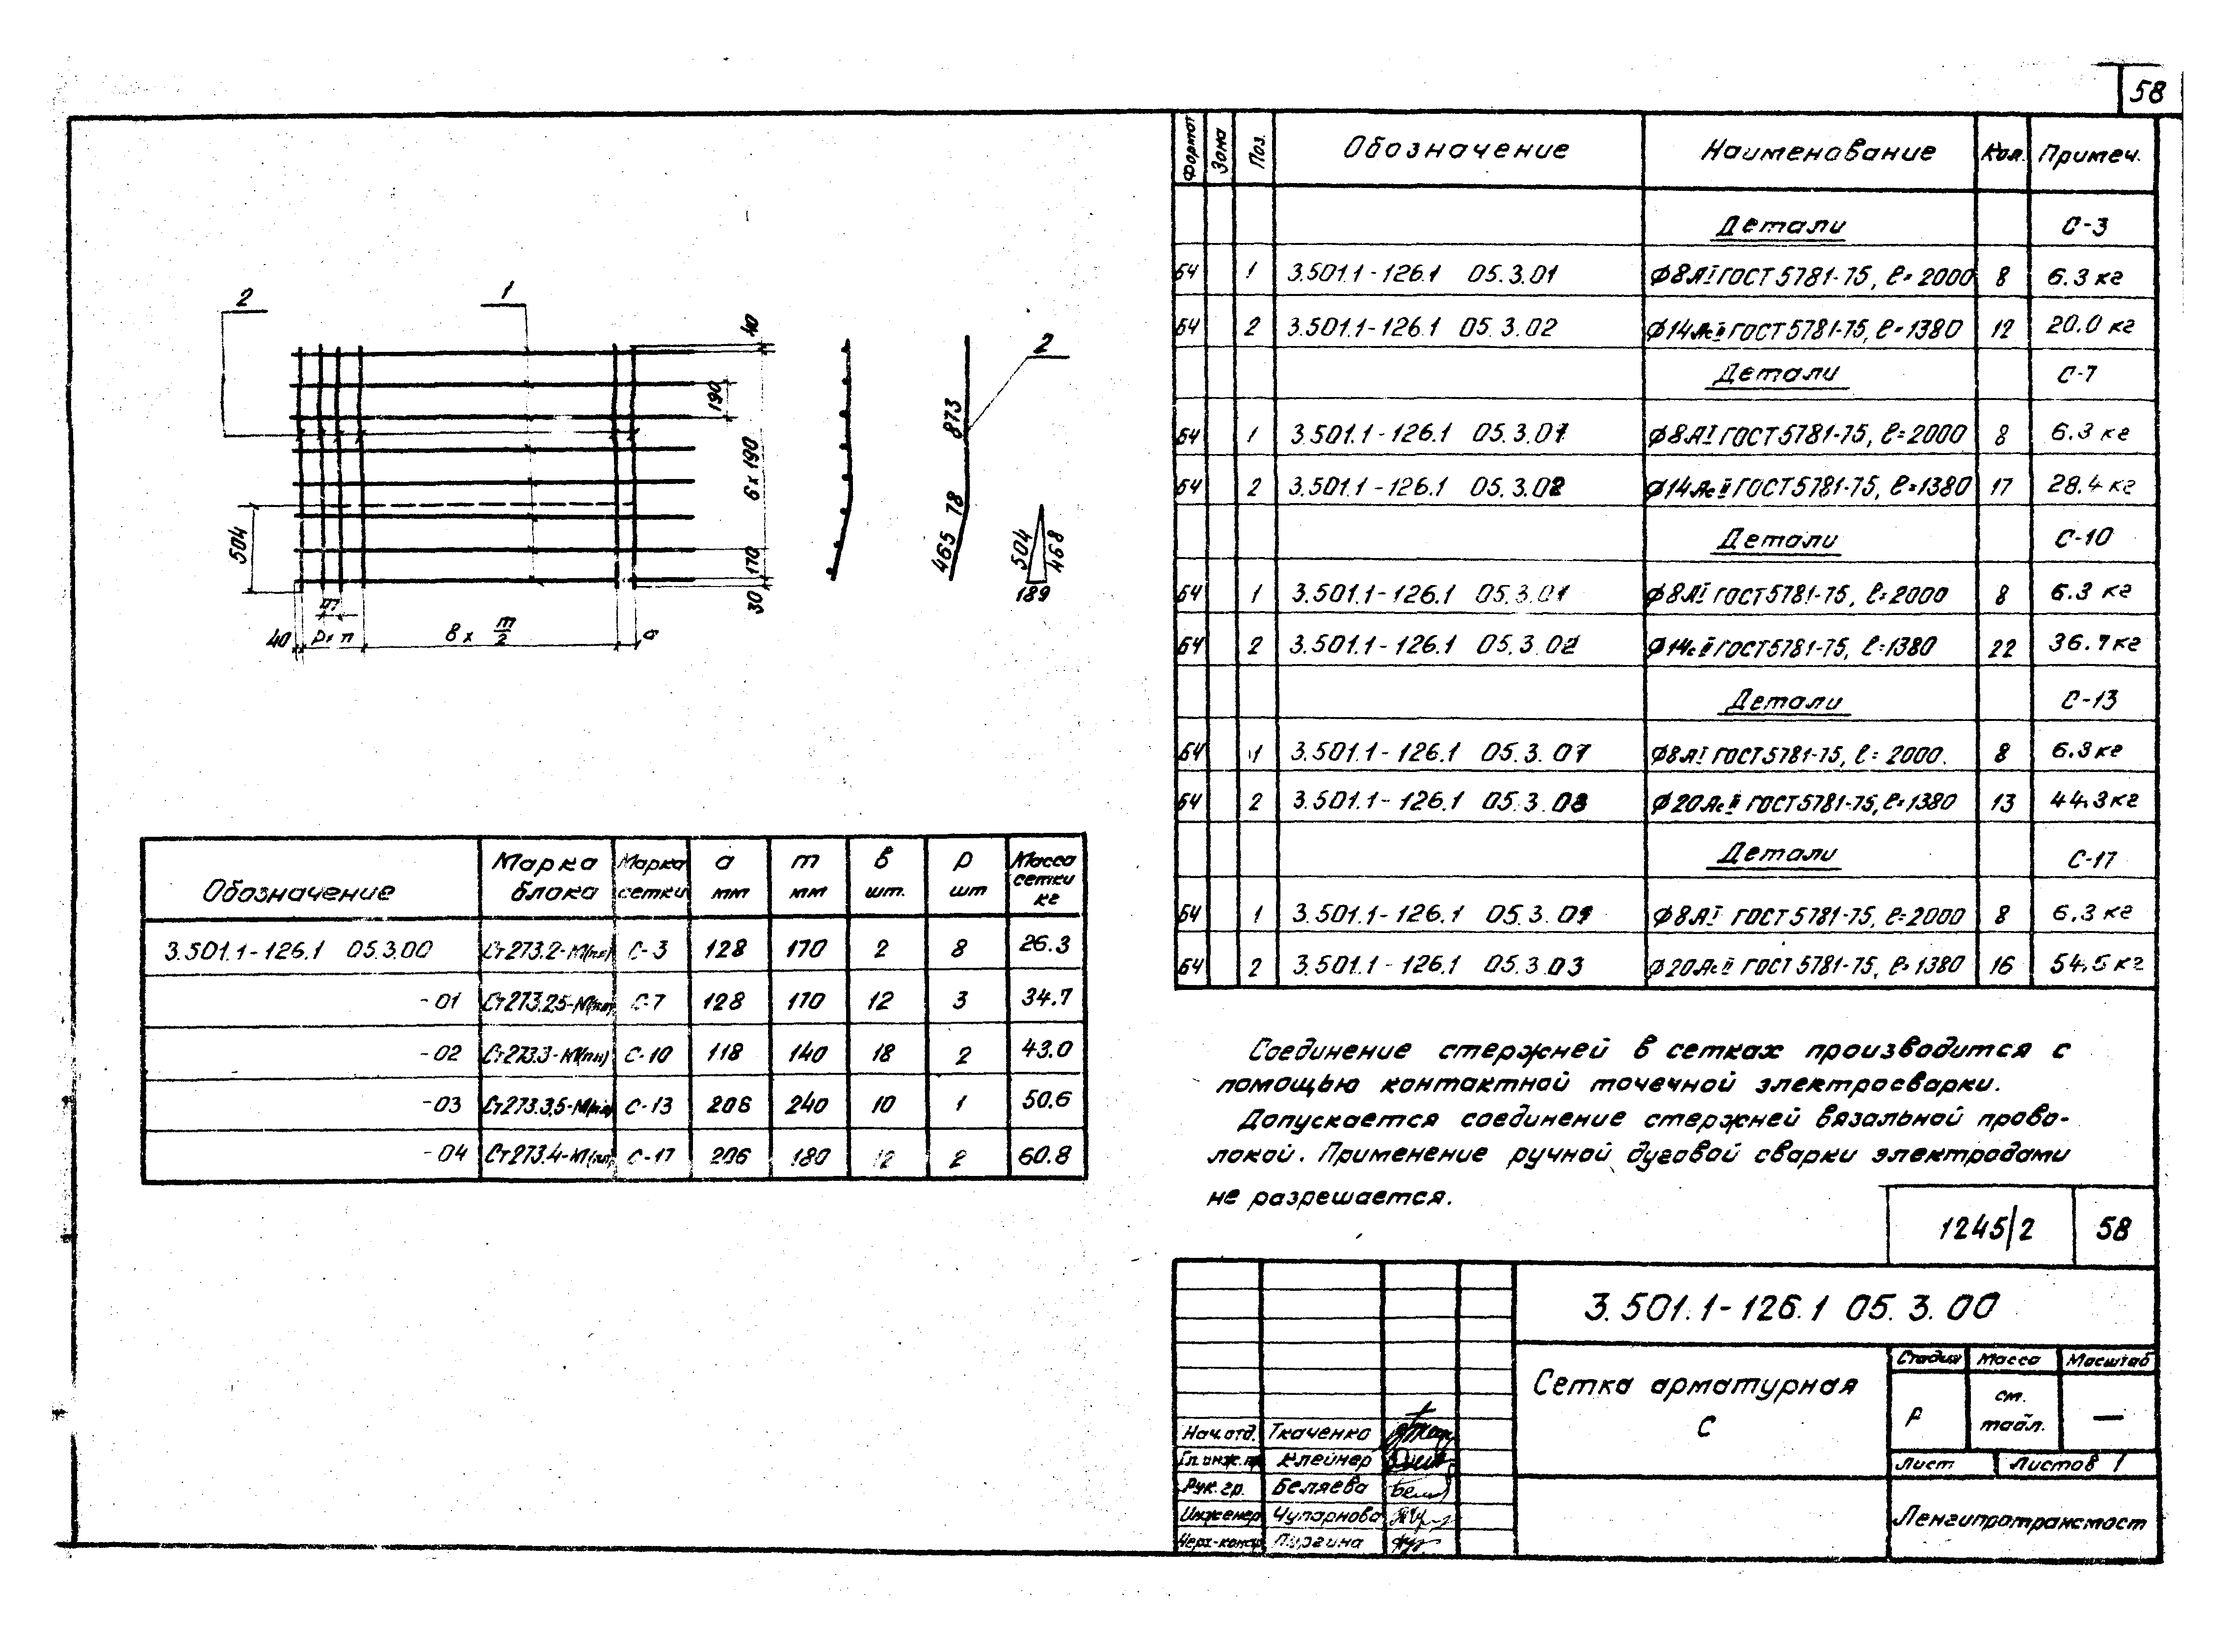 58
Формат Зона Поз. Обозначение Наименование Кол. Примеч.
Детали С-3
БЧ 1 3.501.1-126.1 05.3.01 Ф8АI ГОСТ 5781-75, ℓ=2000 8 6.3 кг
БЧ 2 3.501.1-126.1 05.3.02 Ф14АсII ГОСТ 5781-75, ℓ=1380 12 20.0 кг
Детали С-7
БЧ 1 3.501.1-126.1 05.3.01 Ф8АI ГОСТ 5781-75, ℓ=2000 8 6.3 кг
БЧ 2 3.501.1-126.1 05.3.02 Ф14АсII ГОСТ 5781-75, ℓ=1380 17 28.4 кг
Детали С-10
БЧ 1 3.501.1-126.1 05.3.01 Ф8АI ГОСТ 5781-75, ℓ=2000 8 6.3 кг
БЧ 2 3.501.1-126.1 05.3.02 Ф14сII ГОСТ 5781-75, ℓ=1380 22 36.7 кг
Детали С-13
БЧ 1 3.501.1-126.1 05.3.01 Ф8АI ГОСТ 5781-75, ℓ=2000. 8 6.3 кг
БЧ 2 3.501.1-126.1 05.3.03 Ф20АсII ГОСТ 5781-75, ℓ=1380 13 44.3 кг
Детали С-17
БЧ 1 3.501.1-126.1 05.3.01 Ф8АI ГОСТ 5781-75, ℓ=2000 8 6.3 кг
БЧ 2 3.501.1-126.1 05.3.03 Ф20АсII ГОСТ 5781-75, ℓ=1380 16 54.5 кг
2
1
40
190
6х190
170
30
504
40
р×п
в × m/2
а
873
78
465
2
504
468
189
Обозначение Марка блока Марка сетки а мм m мм в шт. р шт Масса сетки кг
3.501.1-126.1 05.3.00 Ст273.2-М(пп) С-3 128 170 2 8 26.3
-01 Ст273.2,5-М(пп) С-7 128 170 12 3 34.7
-02 Ст273.3-М(пп) С-10 118 140 18 2 43.0
-03 Ст273.3,5-М(пп) С-13 206 240 10 1 50.6
-04 Ст273.4-М(пп) С-17 206 180 12 2 60.8
Соединение стержней в сетках производится с
помощью контактной точечной электросварки.
Допускается соединение стержней вязальной прово-
локой. Применение ручной дуговой сварки электродами
не разрешается.
1245/2 58
3.501.1-126.1 05.3.00
Сетка арматурная
С
Стадия Масса Масштаб
Р ст. табл. —
Лист Листов 1
Ленгипротрансмост
Нач.отд. Ткаченко
Гл.инж.пр. Клейнер
Рук.гр. Беляева
Инженер Чупарнова
Черт-констр Пургина